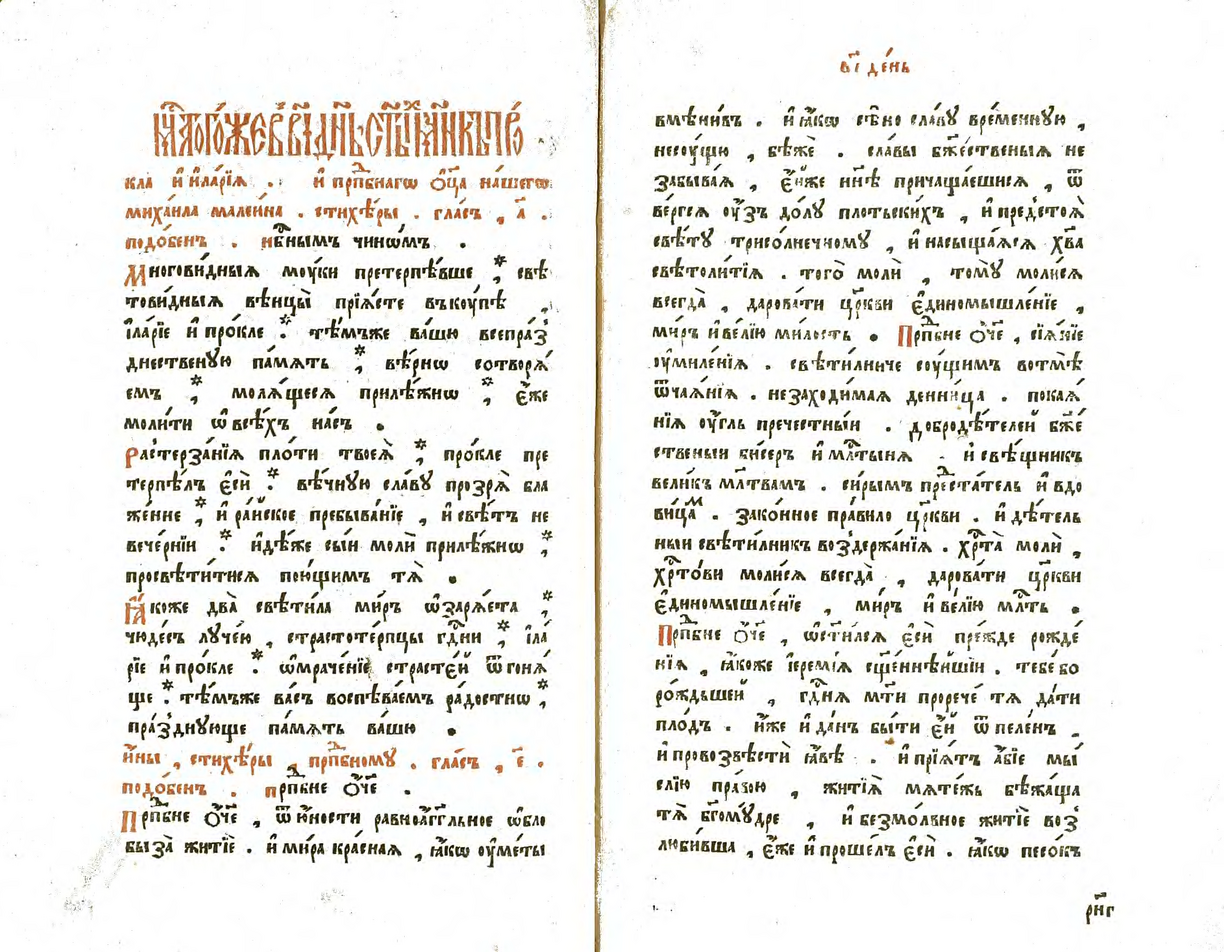 мц҃а тогѡ́же въ в҃і, дн҃ь. ст҃ы́хъ мч҃нкъ, про́
кла и҆ и҆ла́рїѧ .: и҆ прпⷣбнагѡ ѻ҆ц҃а на́шегѡ
миха́ила малеи́на . стихѣ́ры . гла́съ , а҃ .
подо́бенъ . нбⷭ҇нымъ чинѡ́мъ .
Многови́дныѧ моу́ки претерпѣ́вше , * свѣ
тови́дныѧ вѣнцы̀ прїѧ́сте въкоу́пѣ ,
і҆ла́рїе и҆ про́кле : * тѣ́мъже ва́шю всепра́з
дньственꙋю па́мѧть , * вѣ́рнѡ сотворѧ́
емъ , * молѧ́щеесѧ прилѣ́жнѡ , * є҆́же
моли́ти ѡ҆ всѣ́хъ на́съ .
Растерза́нїѧ пло́ти твоеѧ̀ , * про́кле пре
терпѣ́лъ є҆сѝ : * вѣ́чнꙋю сла́вꙋ прозрѧ̀ бла
же́нне , * и҆ ра́йское пребыва́нїе , и҆ свѣ́тъ не
вече́рнїи : * и҆дѣ́же сы́и молѝ прилѣ́жнѡ , *
просвѣти́тисѧ пою́щимъ тѧ̀ .
Ꙗ҆́коже два̀ свѣти́ла ми́ръ ѡ҆зарѧ́ета , *
чюде́съ лꙋче́ю , страстоте́рпцы гдⷭ҇ни , * і҆ла́
рїе и҆ про́кле : * ѡ҆мраче́нїе страсте́й ѿгонѧ́
ще : * тѣ́мъже ва́съ воспѣва́емъ ра́достнѡ , *
пра́зднꙋюще па́мѧть ва́шю .
и҆́ны , стихѣ́ры , прпⷣбномꙋ . гла́съ , є҃ .
подо́бенъ . прпⷣбне ѻ҆́ч҃е .
Прпⷣбне ѻ҆́ч҃е , ѿ ю҆́ности равноа́гг҃льное ѡ҆бло
быза̀ житїѐ . и҆ ми́ра кра́снаѧ , ꙗ҆́кѡ оу҆ме́ты
в҃і де́нь
вмѣни́въ . и҆ ꙗ҆́кѡ сѣ́но сла́вꙋ вре́меннꙋю ,
несꙋ́щю , бѣжѐ . сла́вы бж҃е́ственыѧ не
забыва́ѧ , є҆́йже нн҃ѣ причаща́ешисѧ , ѿ
ве́ргсѧ оу҆́зъ до́лꙋ пло́тьскихъ , и҆ предстоѧ̀
свѣ́тꙋ трисо́лнечномꙋ , и҆ насыща́ѧсѧ хв҃а
свѣтоли́тїѧ . того̀ молѝ , томꙋ̀ моли́сѧ
всегда̀ , дарова́ти цр҃кви є҆диномышле́нїе ,
ми́ръ и҆ ве́лїю ми́лость . Прпⷣбне ѻ҆́ч҃е , сїѧ́нїе
оу҆миле́нїѧ . свѣти́лниче соу́щимъ вотмѣ̀
ѿча́ѧнїѧ . незаходи́маѧ денни́ца . покаѧ́
нїѧ оу҆́гль пречестны́и . добродѣ́телей бж҃е́
ственыи би́серъ и҆ млⷭ҇тынѧ . и҆ свѣ́щникъ
вели́къ мл҃твамъ . си́рымъ преста́тель и҆ вдо
ви́цамъ . зако́нное пра́вило цр҃кви . и҆ дѣ́тель
ныи свѣти́лникъ воздержа́нїѧ . хрⷭ҇та̀ молѝ ,
хрⷭ҇то́ви моли́сѧ всегда̀ , дарова́ти цр҃кви
є҆диномышле́нїе , ми́ръ и҆ ве́лїю млⷭ҇ть .
Прпⷣбне ѻ҆́ч҃е , ѡ҆ст҃и́лсѧ є҆сѝ пре́жде рожде́
нїѧ , ꙗ҆́коже і҆еремі́ѧ сщ҃еннѣ́йшїи . тебе́ бо
ро́ждьшей , гдⷭ҇нѧ мт҃и проречѐ тѧ да́ти
пло́дъ . и҆́же и҆ да́нъ бы́ти є҆́й ѿ пеле́нъ .
и҆ провозвѣстѝ ꙗ҆́вѣ . и҆ прїѧ́тъ а҆́бїе мы́
слїю пра́вою , житїѧ̀ мѧте́жь бѣжа́ща
тѧ̀ бг҃омꙋ́дре , и҆ безмо́лвное житїѐ воз
люби́вша , є҆́же и҆ проше́лъ є҆сѝ . ꙗ҆́кѡ песо́къ
рн҃г